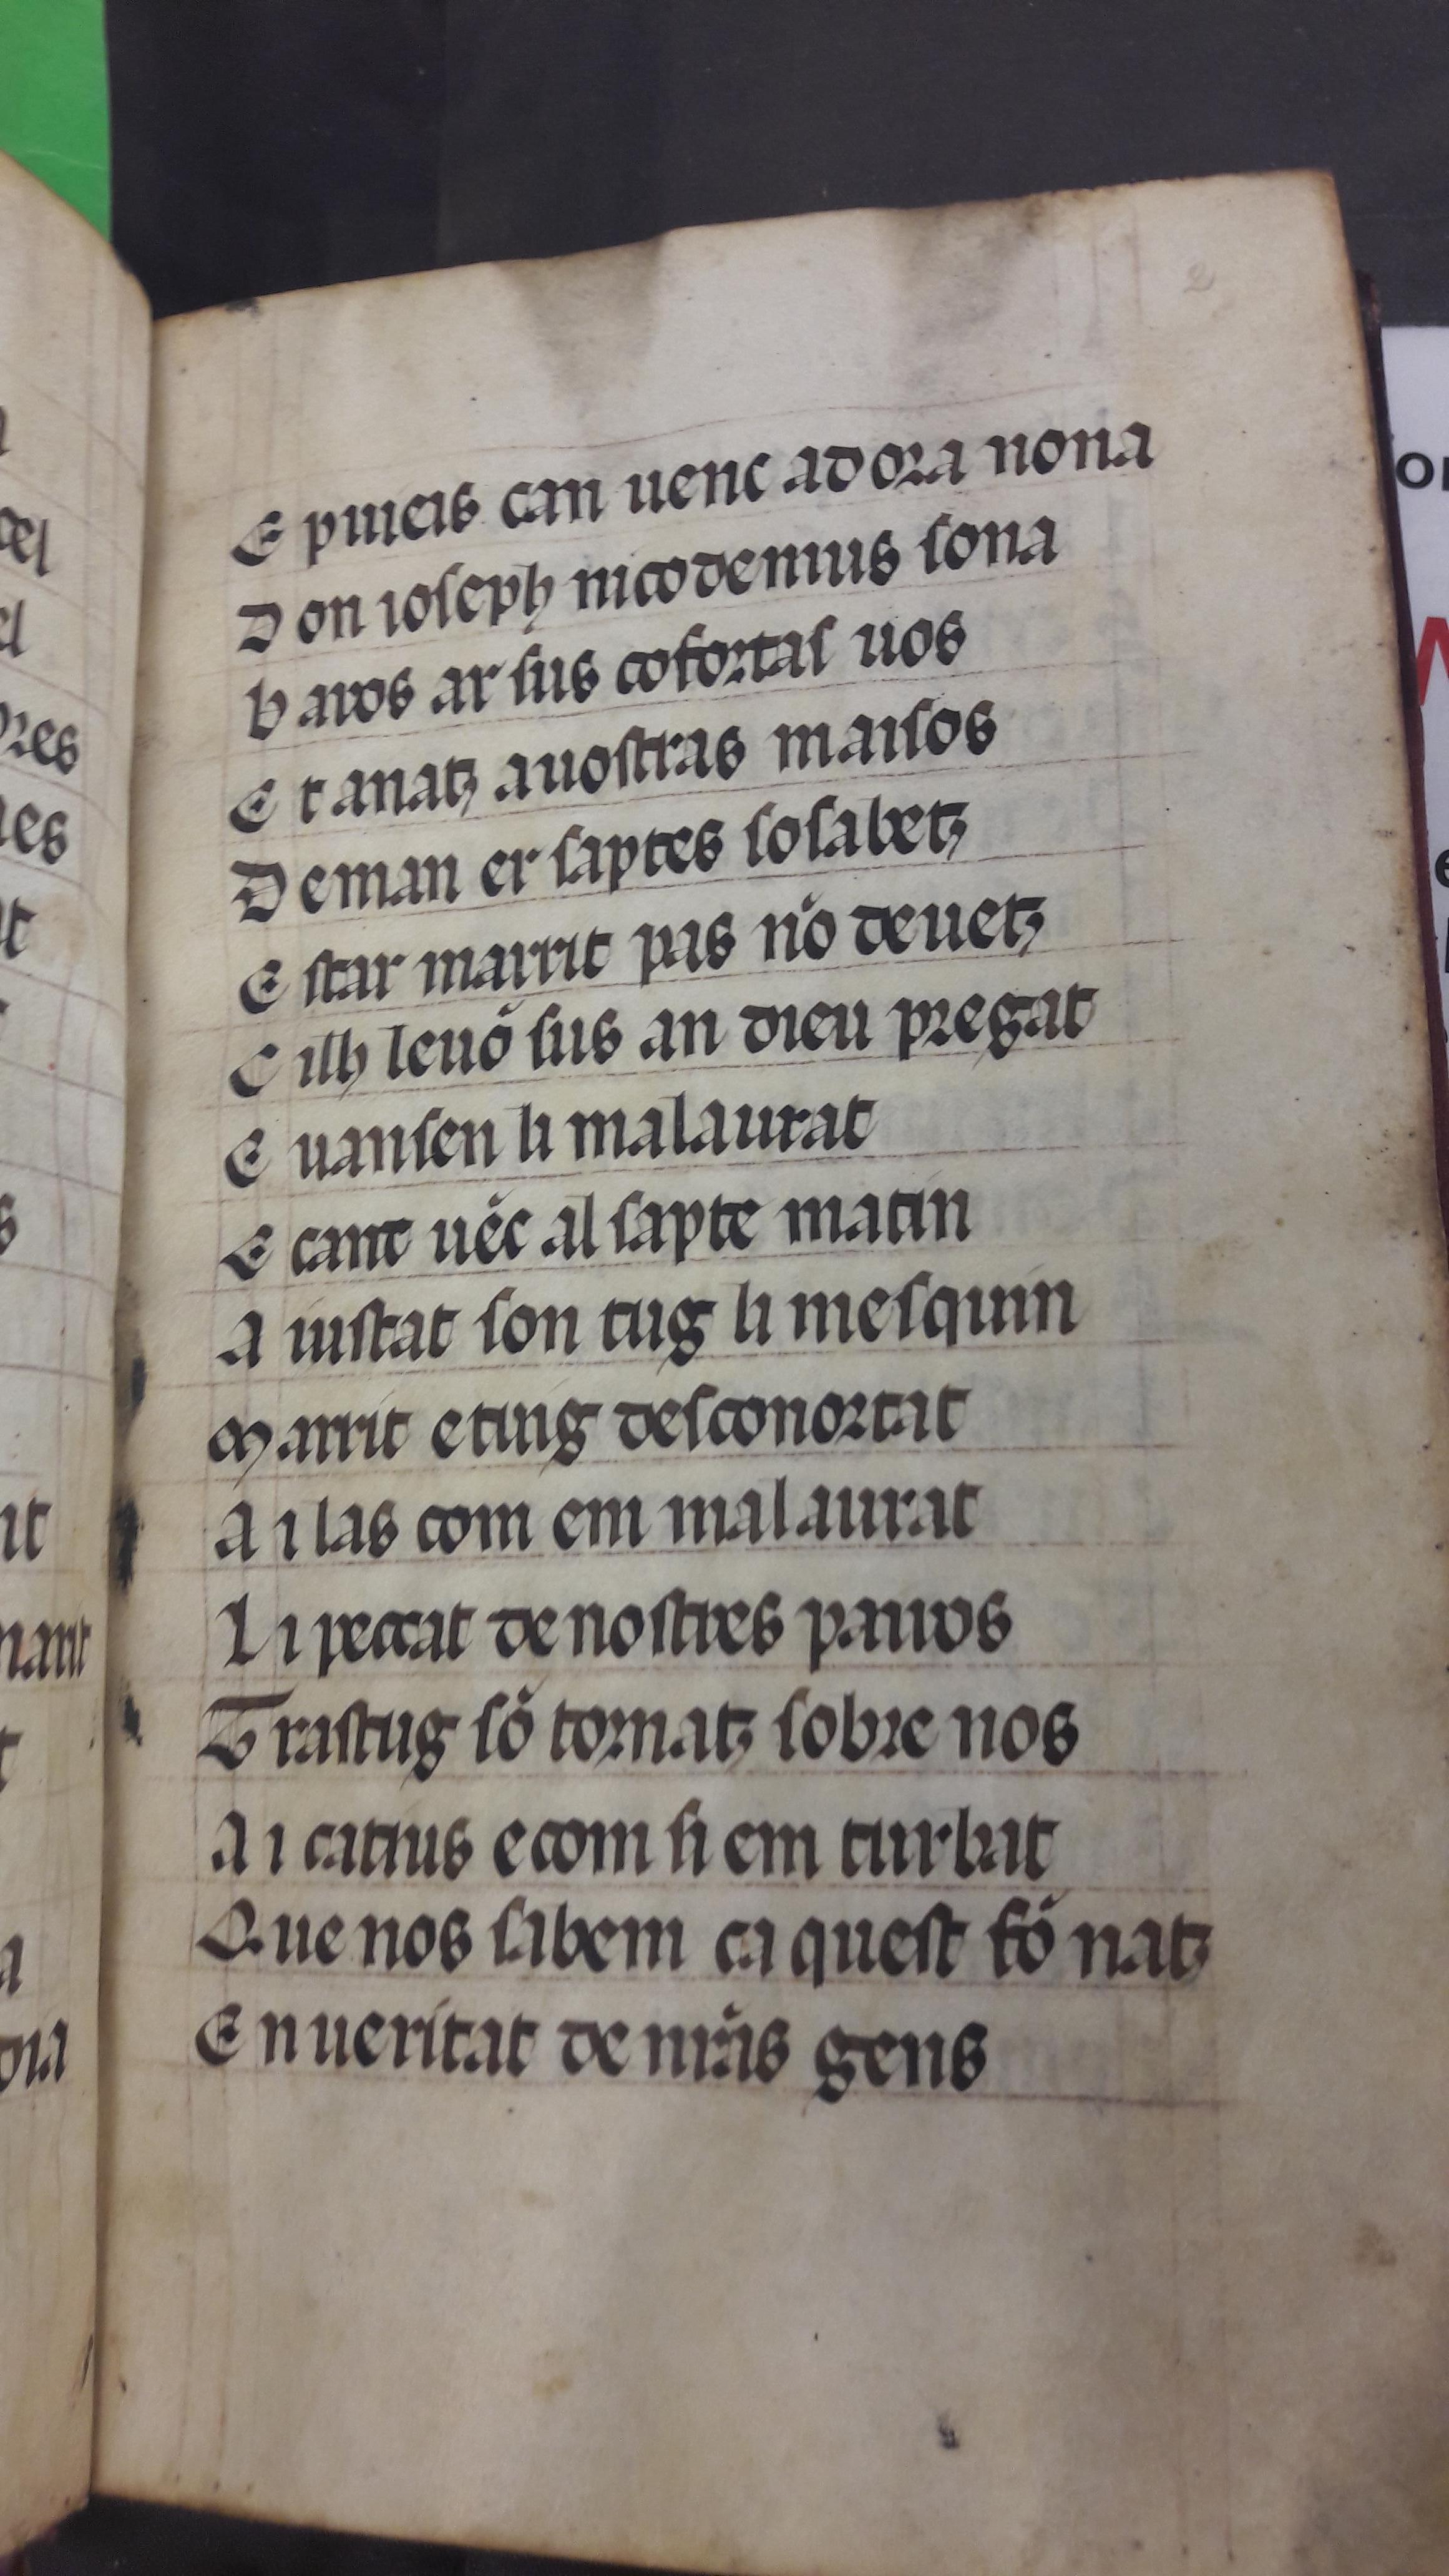 E pueis can uenc ad ora nona
D on ioseph nicodemus sona
b aros ar sus cofortas uos
E t anatz a uostras maisos
D eman er saptes so sabetz
E star marrit pas nõ deuetz
C ilh leuõ sus an dieu pregat
E uan sen li malaurat
E cant uẽc al sapte matin
A iustat son tug li mesquin
M arrit e tuig desconortat
A i las com em malaurat
L i peccat de nostres pairos
T rastug sõ tornatz sobre nos
A i catius e com si em turbat
Q ue nos sabem ca quest fõ natz
E n ueritat de nr̃as gens
2